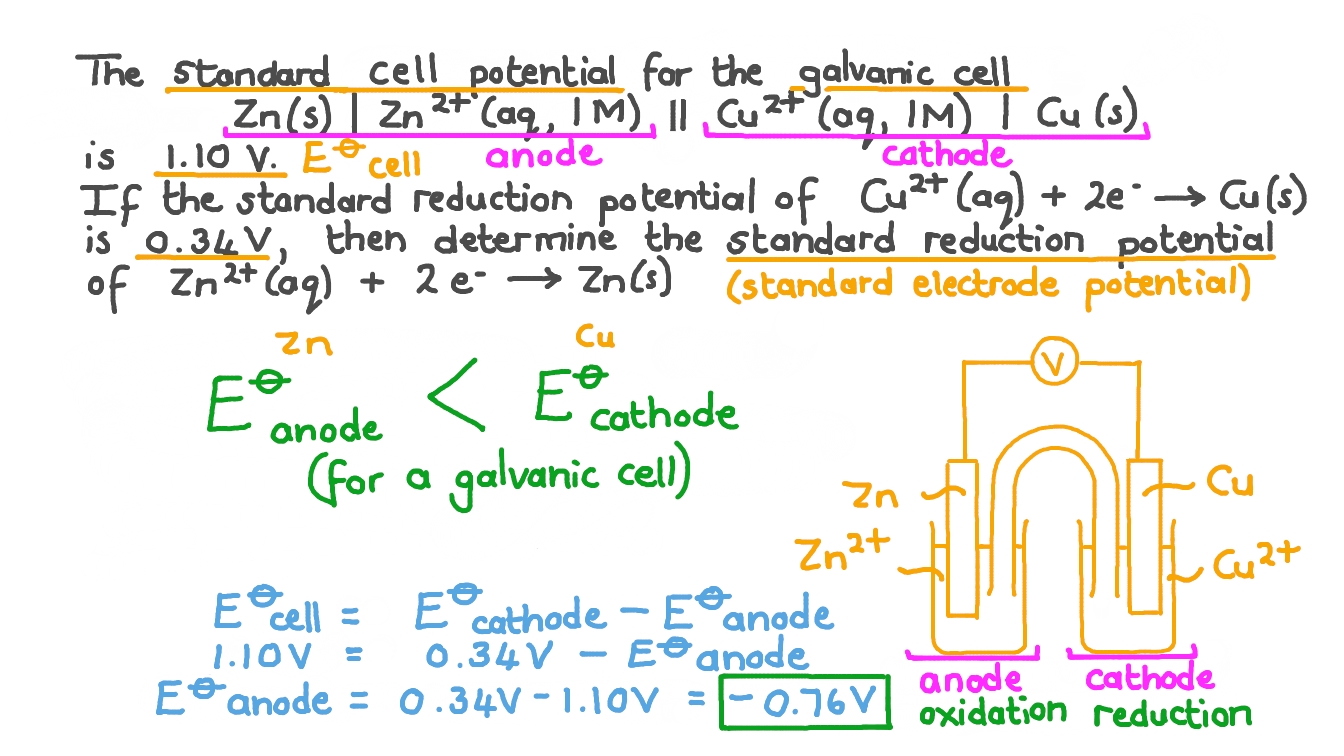 The standard cell potential for the galvanic cell
Zn(s) | Zn²⁺(aq, 1M) || Cu²⁺(aq, 1M) | Cu(s)
anode cathode
is 1.10 V. E⦵cell
If the standard reduction potential of Cu²⁺(aq) + 2e⁻ → Cu(s)
is 0.34V, then determine the standard reduction potential
of Zn²⁺(aq) + 2e⁻ → Zn(s) (standard electrode potential)
Zn Cu
E⦵anode < E⦵cathode
(for a galvanic cell)
V
Zn Cu
Zn²⁺ Cu²⁺
anode cathode
oxidation reduction
E⦵cell = E⦵cathode − E⦵anode
1.10V = 0.34V − E⦵anode
E⦵anode = 0.34V − 1.10V = −0.76V